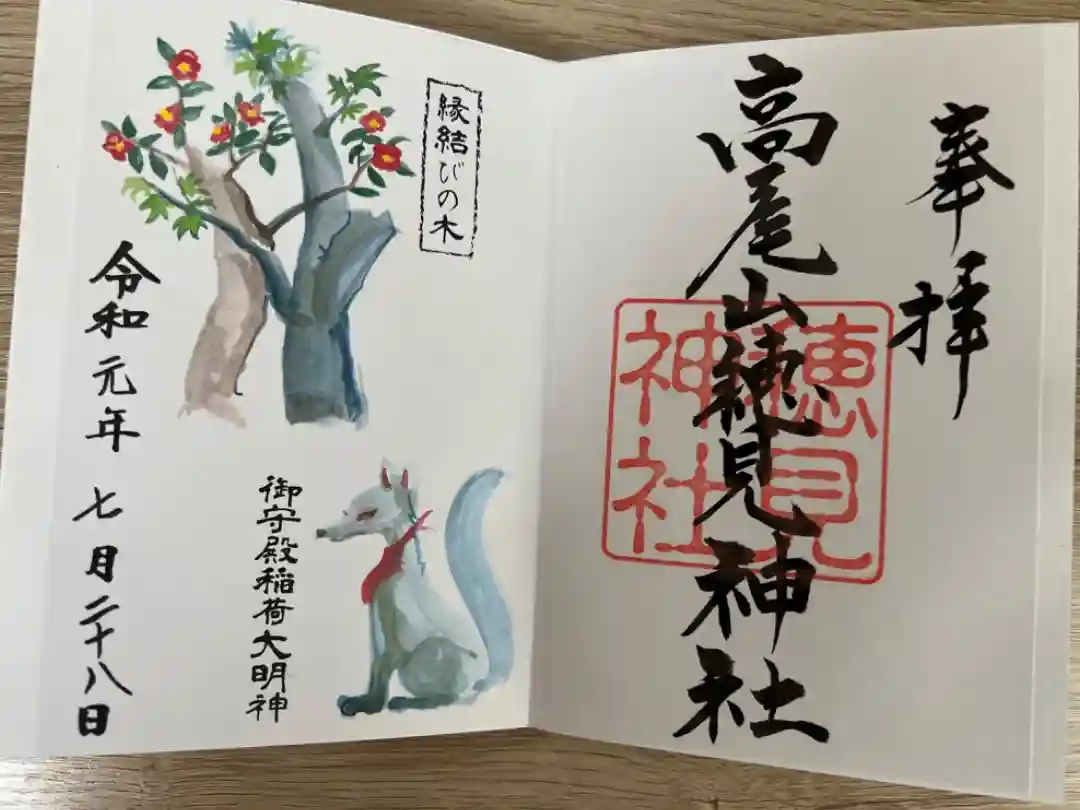 奉拝
高尾山穂見神社
穂見神社
縁結びの木
御守殿稲荷大明神
令和元年 七月二十八日